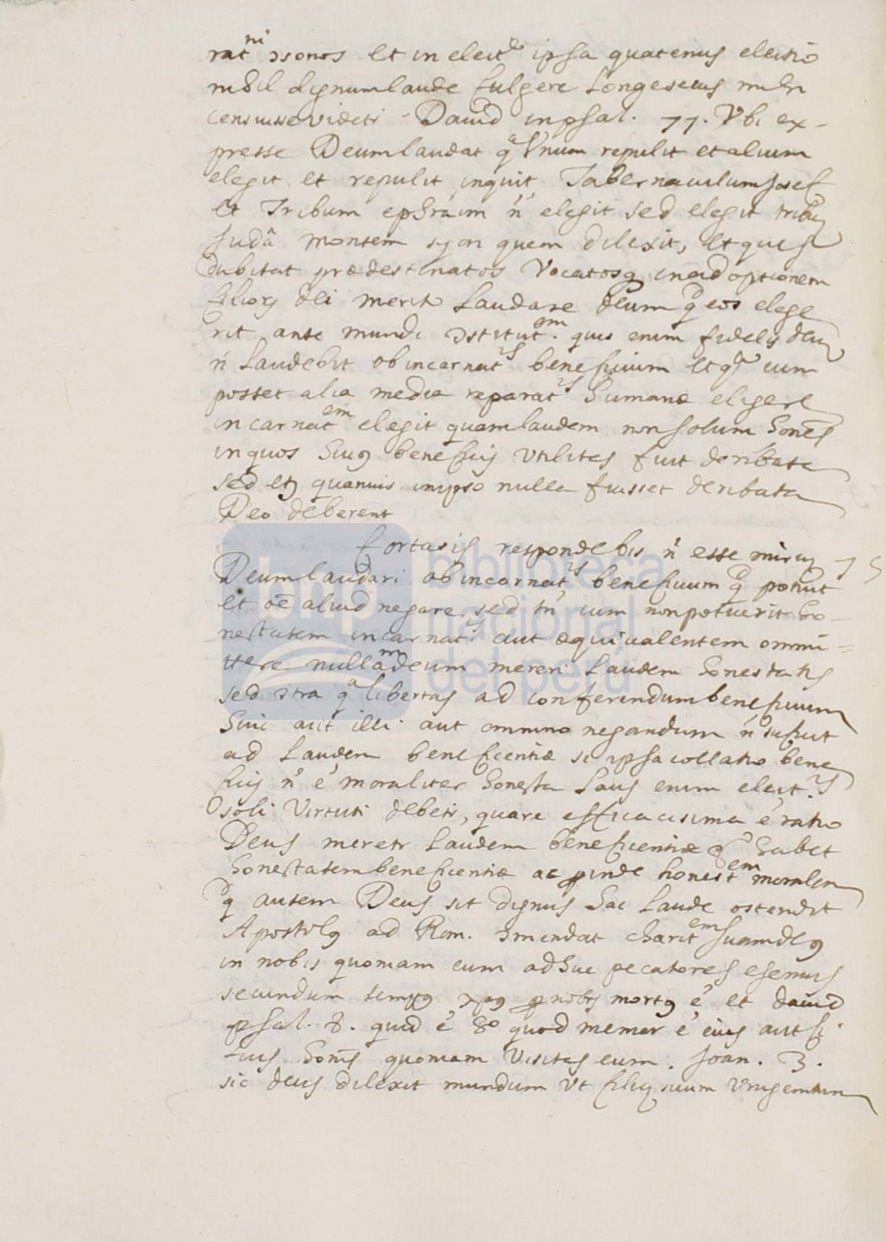 rat^ni ɔsonos et in elect^e ipsa quatenus electio
nihil dignum laude fulgere longe secus mihi
censuisse videtr David in psal. 77. Vbi ex-
presse Deum laudat q^a Vnum repulit et alium
elegit et repulit inquit Tabernaculum Josef
et Tribum ephraim ñ elegit sed elegit tribũ
Judã montem syon quem dilexit, et quis
dubitat prædestinatos Vocatosq in adoptionem
filiorȝ dei merito Laudare deum q^d eos elege
rit ante mundi ɔstitut^em. quis enim fidelis deũ
ñ Laudebit ob incarnat^is beneficium et q^d cum
posset alia media reparat^is humanæ eligere
incarnat^em elegit quam laudem non solum homẽs
in quos huius beneficij Vtilitas fuit deribata
sed etȝ quamuis in ipso nulla fuisset deribata
Deo deberent
fortasis respondebis ñ esse mirũ 75
Deum laudari ob incarnat^is beneficium q^d potuit
et oẽ aliud negare, sed tñ cum non potuerit ho-
nestatem incarnat^is aut æquivalentem ommi=
ttere nullam deum mereri Laudem honestatis
sed ɔtra q^a libertas ad conferendum beneficium
huic aut illi aut omnino negandum ñ suficit
ad Laudem beneficientiæ si ipsa collatio bene
ficij ñ ẽ moraliter honesta Laus enim elect^is
soli Virtuti debetr, quare efficacisima ẽ ratio
Deus meretr Laudem beneficientiæ q^a habet
honestatem beneficientiæ ac proinde honest^em moralem
q^d autem Deus sit dignus hac Laude ostendit
Apostolus ad Rom. ɔmendat charit^em suam deus
in nobis quoniam cum adhuc pecatores esemus
secundum tempus xpus pro nobis mortus ẽ et david
psal. 8. quid ẽ ho quod memor ẽ eius aut fi-
lius homis quoniam Visitas eum. Joan. 3.
sic deus dilexit mundum Vt filiũ suum Vnigenitum
biblioteca
nacional
del perú
bnp